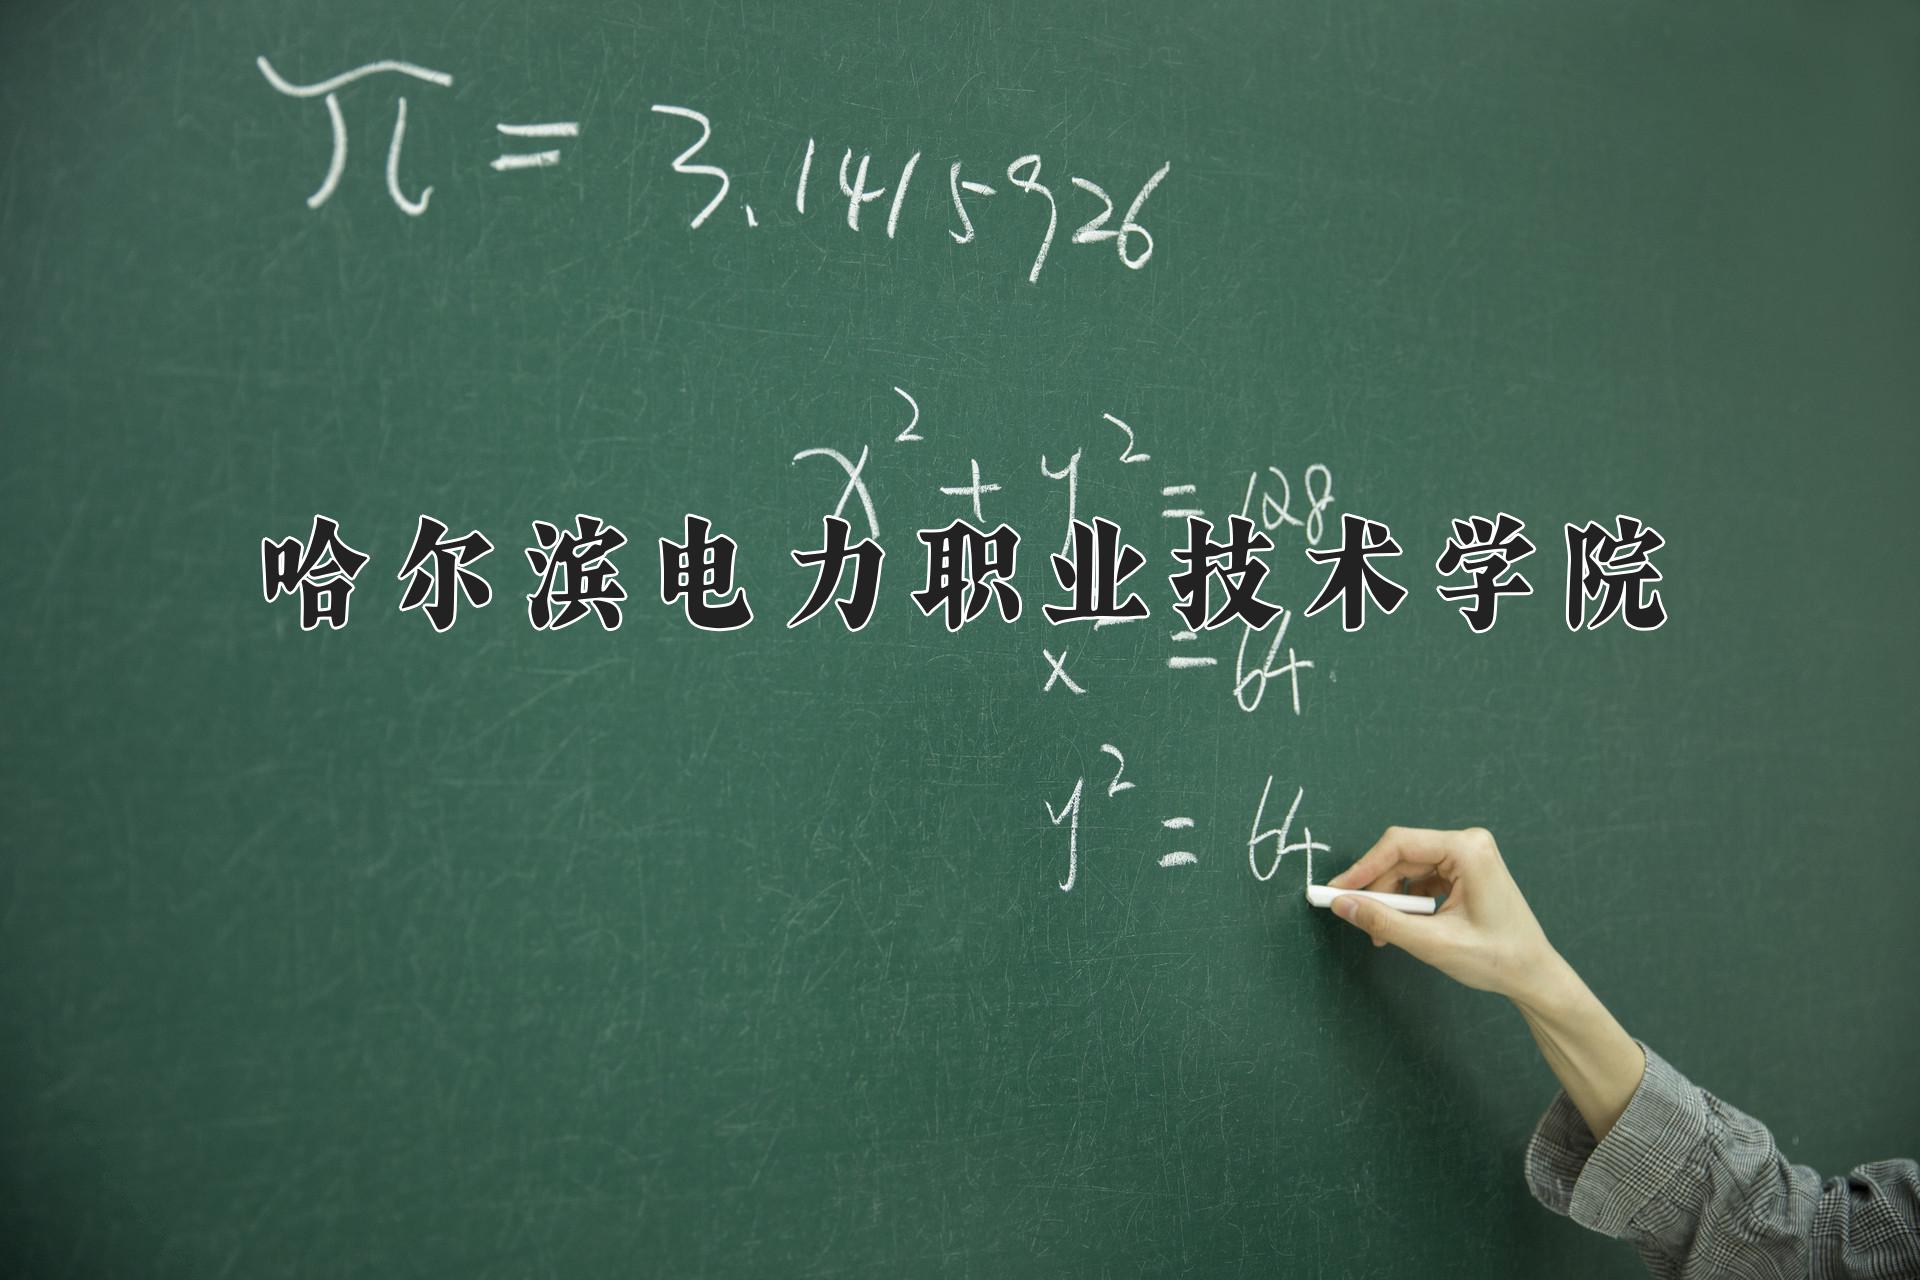 π = 3.1415926
x² + y² = 128
哈尔滨电力职业技术学院
x² = 64
y² = 64